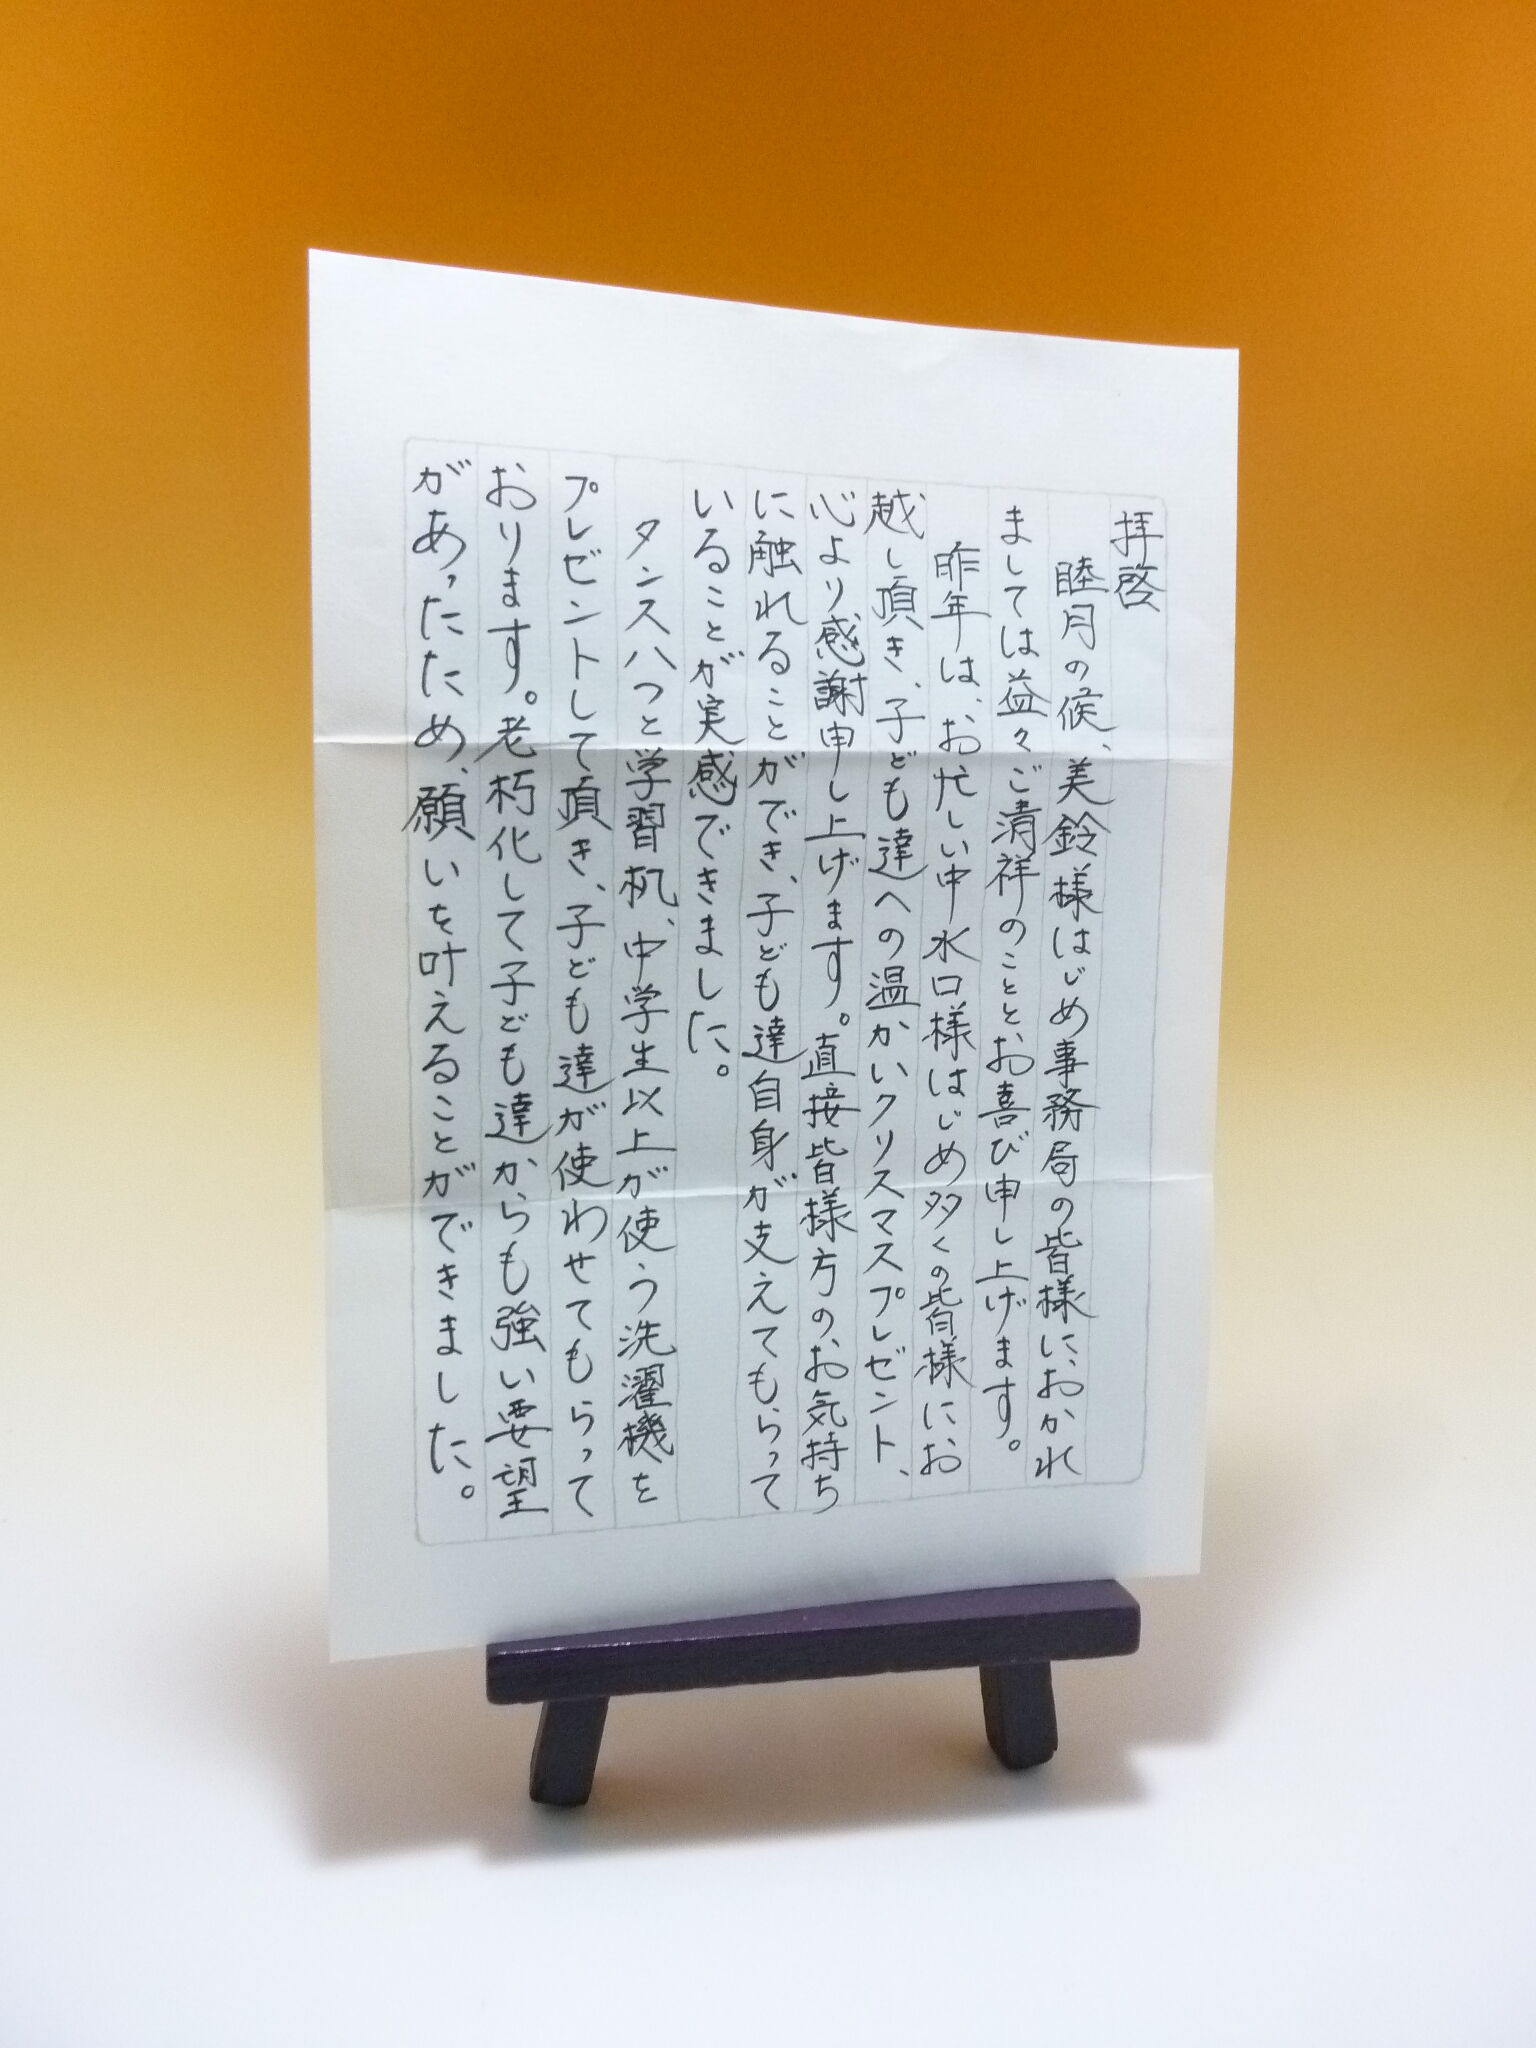 拝啓
睦月の候、美鈴様はじめ事務局の皆様におかれ
ましては益々ご清祥のこととお喜び申し上げます。
昨年は、お忙しい中水口様はじめ多くの皆様にお
越し頂き、子ども達への温かいクリスマスプレゼント、
心より感謝申し上げます。直接皆様方の、お気持ち
に触れることができ、子ども達自身が支えてもらって
いることが実感できました。
タンス八つと学習机、中学生以上が使う洗濯機を
プレゼントして頂き、子ども達が使わせてもらって
おります。老朽化して子ども達からも強い要望
があったため、願いを叶えることができました。